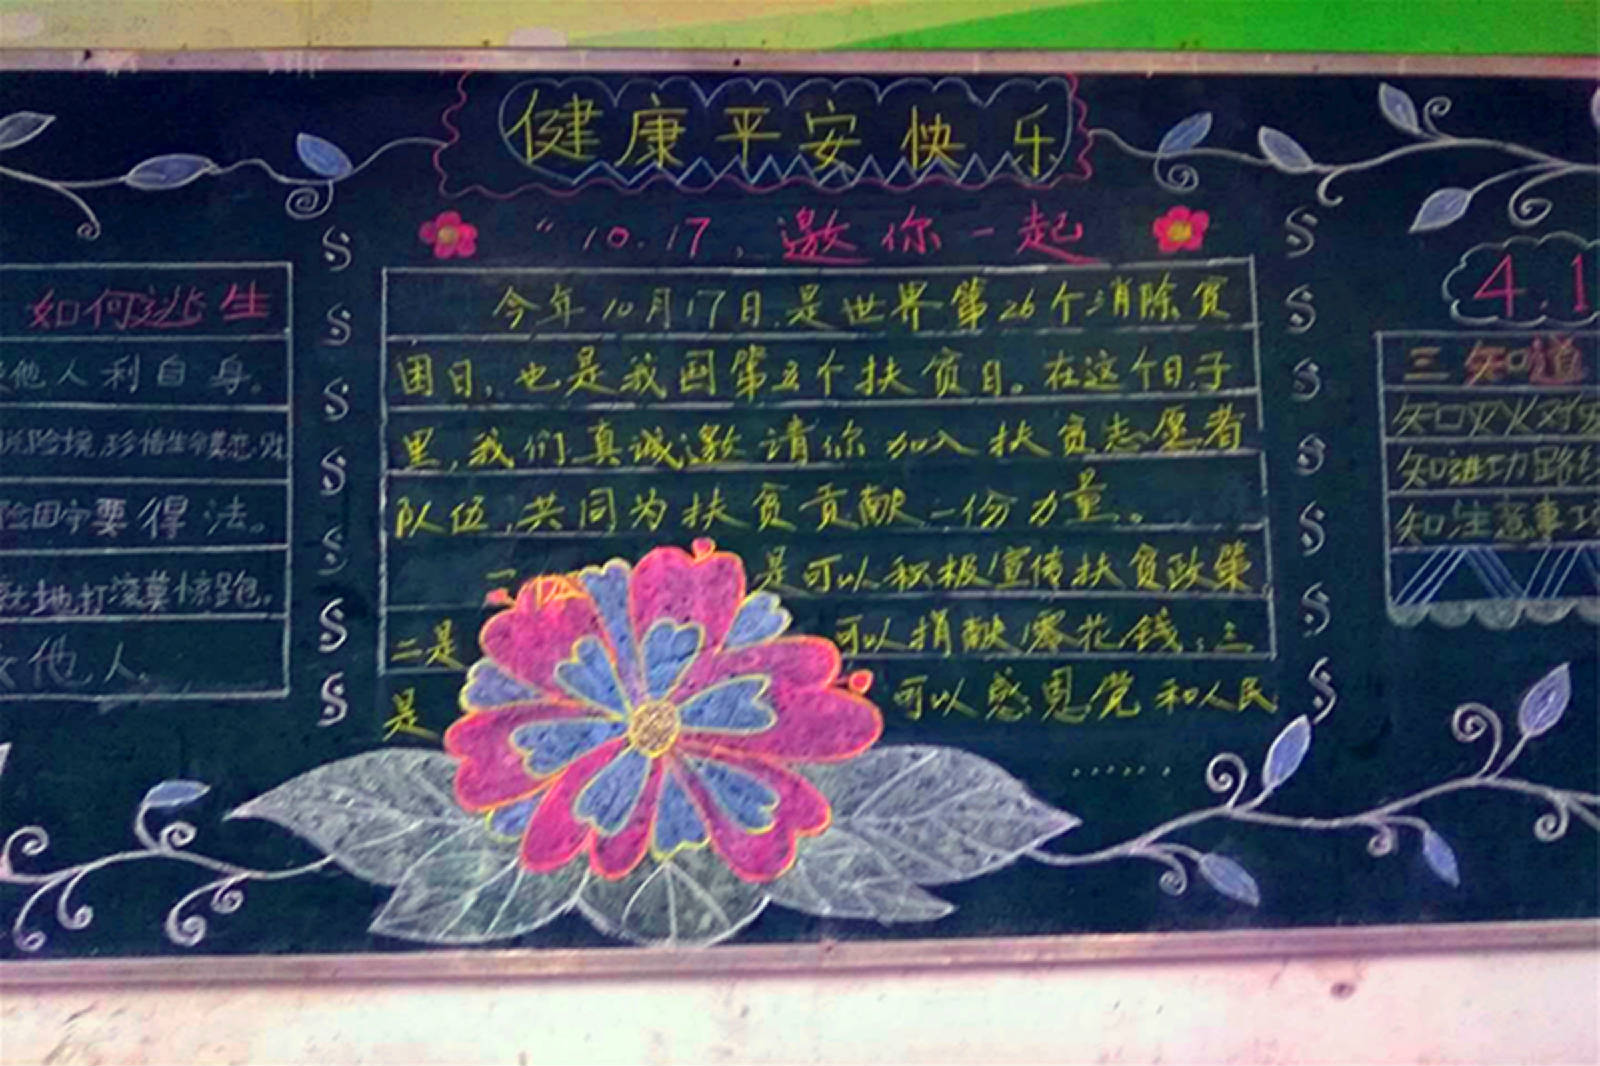 健康平安快乐
"10.17,邀你一起
今年10月17日,是世界第26个消除贫
困日,也是我国第五个扶贫日。在这个日子
里,我们真诚邀请你加入扶贫志愿者
队伍,共同为扶贫贡献一份力量。
一 是可以积极宣传扶贫政策
二是 可以捐献零花钱;三
是 可以感恩党和人民
......
如何逃生
他人利自身。
险境,珍惜生命莫恋财
要得法。
就地打滚莫惊跑。
他人.
4.1
三知道
知灭火
知进功路线
知注意事项